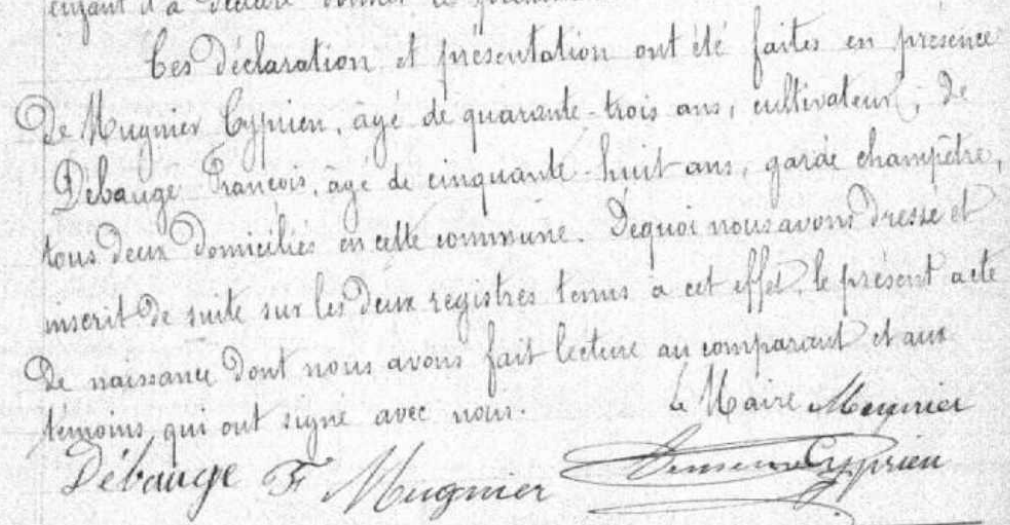 enfant il a déclaré donner le
Ces déclaration et présentation ont été faites en présence
De Mugnier Cyprien, âgé de quarante-trois ans, cultivateur, de
Débauge François, âgé de cinquante-huit ans, garde champêtre,
tous deux domiciliés en cette commune. Dequoi nous avons dressé et
inscrit de suite sur les deux registres tenus à cet effet, le présent acte
De naissance dont nous avons fait lecture au comparant et aux
témoins qui ont signé avec nous. Le Maire Mugnier
Débauge F Mugnier Cyprien